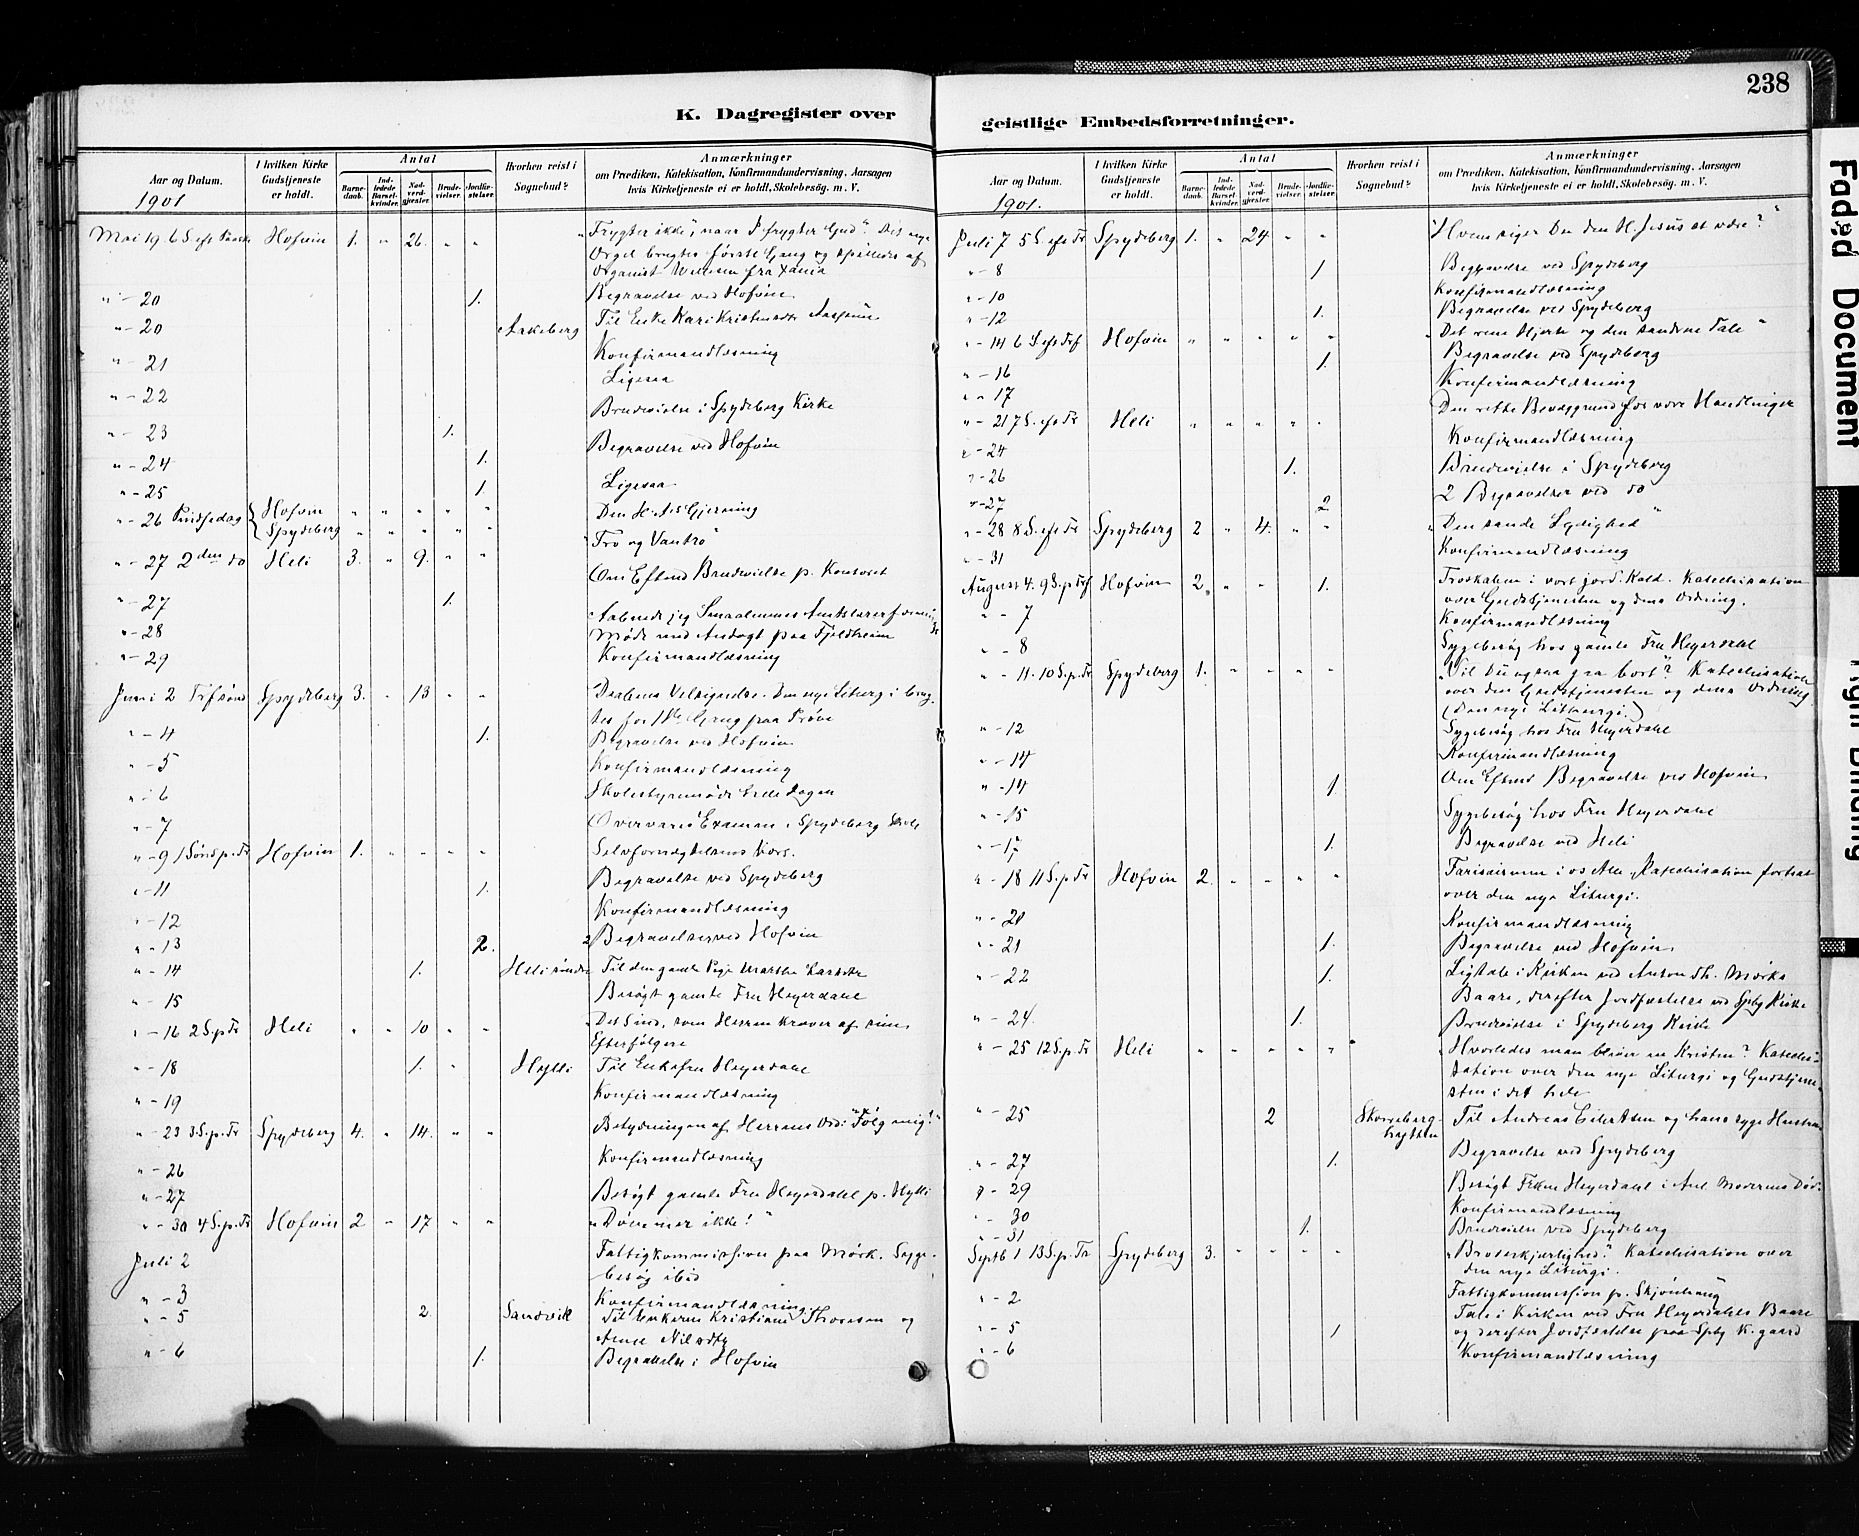 238
K. Dagregister over
geistlige Embedsforretninger.
Aar og Datum.
1901
I hvilken Kirke Gudstjeneste er holdt.
Antal
Barnedaab.
Indledede Barselkvinder.
Nadverdgjester.
Brudevielser.
Jordfæstelser.
Hvorhen reist i Sognebud?
Anmærkninger
om Prædiken, Katekisation, Konfirmandundervisning, Aarsagen
hvis Kirketjeneste ei er holdt, Skolebesøg. m. V.
Mai 19. 6 S. eft Paaske Hofvin 1. " 26. " " "Frygter ikke", naar I frygter Gud". Det nye
Orgel brugtes første Gang og spilledes af
Organist fra Xania
" - 20 1. Begravelse ved Hofvin
" - 20 Askeberg Til Enke Kari Kristiansdtr
" - 21 Konfirmandlæsning
" - 22 Ligesaa
" - 23 1. Brudevielse i Spydeberg Kirke
" - 24 1. Begravelse ved Hofvin
" - 25 1. Ligesaa
" - 26 Pindsedag { Hofvin " " " " " Den H. A.s Gjerning
Spydeberg " " " " " "Tro og Vantro"
" - 27 2den do Heli 3. " 9. " "
" - 27 1. Om Efterm Brudevielse p. Kontoret
" - 28 Aabnede jeg Smaalenenes Amtslærerforenings
Møde med Andagt paa Fjeldheim
" - 29 Konfirmandlæsning
Juni 2 Trefsønd Spydeberg 3. " 13 " " Daabens Velsignelse. Den nye Liturg i brug
tes for 1ste Gang paa Prøve
" - 4 1. Begravelse ved Hofvin
" - 5 Konfirmandlæsning
" - 6 Skolestyremøde hele Dagen
" - 7 Overværed Examen i Spydeberg Skole
" - 9 1 Sønd p. Tr Hofvin 1. " " " " Selvfornægtelsens Kors.
" - 11 1. Begravelse ved Spydeberg
" - 12 Konfirmandlæsning
" - 13 2. 2 Begravelser ved Hofvin
" - 14 1. Heli søndre Til den gamle Pige Marthe
" - 15 Besøgt gamle Fru Heyerdahl
" - 16 2 S. p. Tr Heli " " 10 " " Det Sind, som Herren kræver af sine
Efterfølgere
" - 18 1. " Hylli Til Enkefru Heyerdahl
" - 19 Konfirmandlæsning
" - 23 3 S. p. Tr Spydeberg 4. " 14. " " Betydningen af Herrens Ord: "Følg mig!"
" - 26 Konfirmandlæsning
" - 27 Besøgt gamle Fru Heyerdahl p. Hylli
" - 30 4 S. p. Tr Hofvin 2 " 17 " " "Dømmer ikke!"
Juli 2 Fattigkommission paa Mørk. Syge-
besøg ibid
" - 3 Konfirmandlæsning
" - 5 2 Sandvik Til Enkerne Kristiane Thoresen og
Anne Nilsdtr
" - 6 1. Begravelse i Hofvin
Aar og Datum.
1901.
I hvilken Kirke Gudstjeneste er holdt.
Antal
Barnedaab.
Indledede Barselkvinder.
Nadverdgjester.
Brudevielser.
Jordfæstelser.
Hvorhen reist i Sognebud?
Anmærkninger
om Prædiken, Katekisation, Konfirmandundervisning, Aarsagen
hvis Kirketjeneste ei er holdt, Skolebesøg. m. V.
Juli 7 5 S. eft Tr Spydeberg 1. " 24. " " "Hvem siger Du den H. Jesus at være?"
" - 8 1 Begravelse ved Spydeberg
" - 10 Konfirmandlæsning
" - 12 1. Begravelse ved Spydeberg
" - 14 6 S eft Tref Hofvin " " " " " "Det rene Hjerte og den sanddrue Tale"
" - 16 1. Begravelse ved Spydeberg
" - 17 Konfirmandlæsning
" - 21 7 S. eft Tr Heli " " " " " Den rette Bevæggrund for vore Handlinger
" - 24 Konfirmandlæsning
" - 26 1. Brudevielse i Spydeberg
" - 27 2 2 Begravelser ved do
" - 28 8 S. eft Tr Spydeberg 2 " 4. " " "Den sande Lydighed"
" - 31 Konfirmandlæsning
August 4. 9 S. p Tref Hofvin 2. " " 1. Troskaben i vort jord. Kald. Katechisation
over Gudstjenesten og dens Ordning.
" - 7 Konfirmandlæsning
" - 8 Sygebesøg hos gamle Fru Heyerdahl
" - 11. 10 S. p. Tr Spydeberg 1. " " " " "Vil Du ogsaa gaa bort"? Katechisation
over den Gudstjenesten og dens Ordning
(Den nye Liturgi)
" - 12 Sygebesøg hos Fru Heyerdahl
" - 14 Konfirmandlæsning
" - 14 1 Om Efterm Begravelse ved Hofvin
" - 15 Sygebesøg hos Fru Heyerdahl
" - 17 1. Begravelse ved Heli
" - 18 11 S. p. Tr Hofvin 2. " " " " Farisæismen i os Alle. Katechisation fortsat
over den nye Liturgi.
" - 20 Konfirmandlæsning
" - 21 1. Begravelse ved Hofvin
" - 22 1. Ligtale i Kirken ved Anton Th. Mørks
Baare, derefter Jordfæstelse ved Spbg Kirke
" - 24. 1. Brudevielse i Spydeberg Kirke
" - 25 12 S. p. Tr Heli " " " " " "Hvorledes man bliver en Kristen? Kateche-
sation over den nye Liturgi og Gudstjene-
sten i det hele
" - 25 2 Skovseberg-
hytten Til Andreas Eilertsen og hans syge Hustru
" - 27 1. Begravelse ved Spydeberg
" - 29 Besøgt Frken Heyerdahl i Anl Moderens Død.
" - 30 Konfirmandlæsning
" - 31 1. Brudevielse ved Spydeberg
Septb 1 13 S. p. Tr Spydeberg 3. " " " " "Broderkjærlighed". Katechisation over
den nye Liturgi.
" - 2 Fattigkommission p. Skjønhaug
" - 5 1 Tale i Kirken ved Fru Heyerdahls Baare
og derefter Jordfæstelse paa Spbg K.gaard
" - 6 Konfirmandlæsning
Faded Document